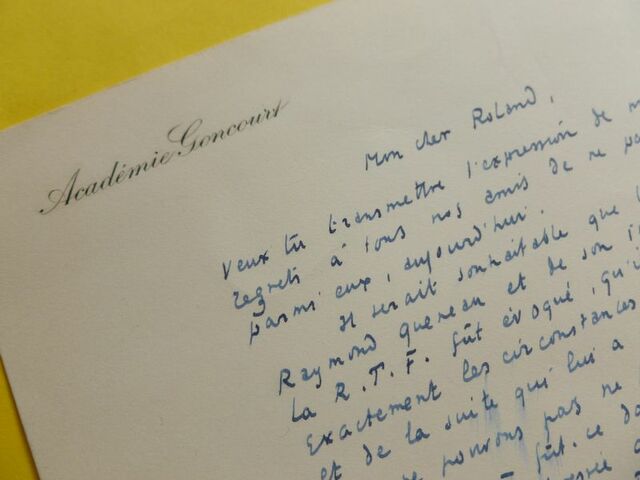 Académie Goncourt
Mon cher Roland,
Veux tu transmettre l'expression de
regrets à tous nos amis de ne
parmi eux, aujourd'hui.
Il serait souhaitable que
Raymond Queneau et de son
la R.T.F. fût évoqué, qu'
Exactement les circonstances
et de la suite qui lui a
pouvons pas ne
fût-ce